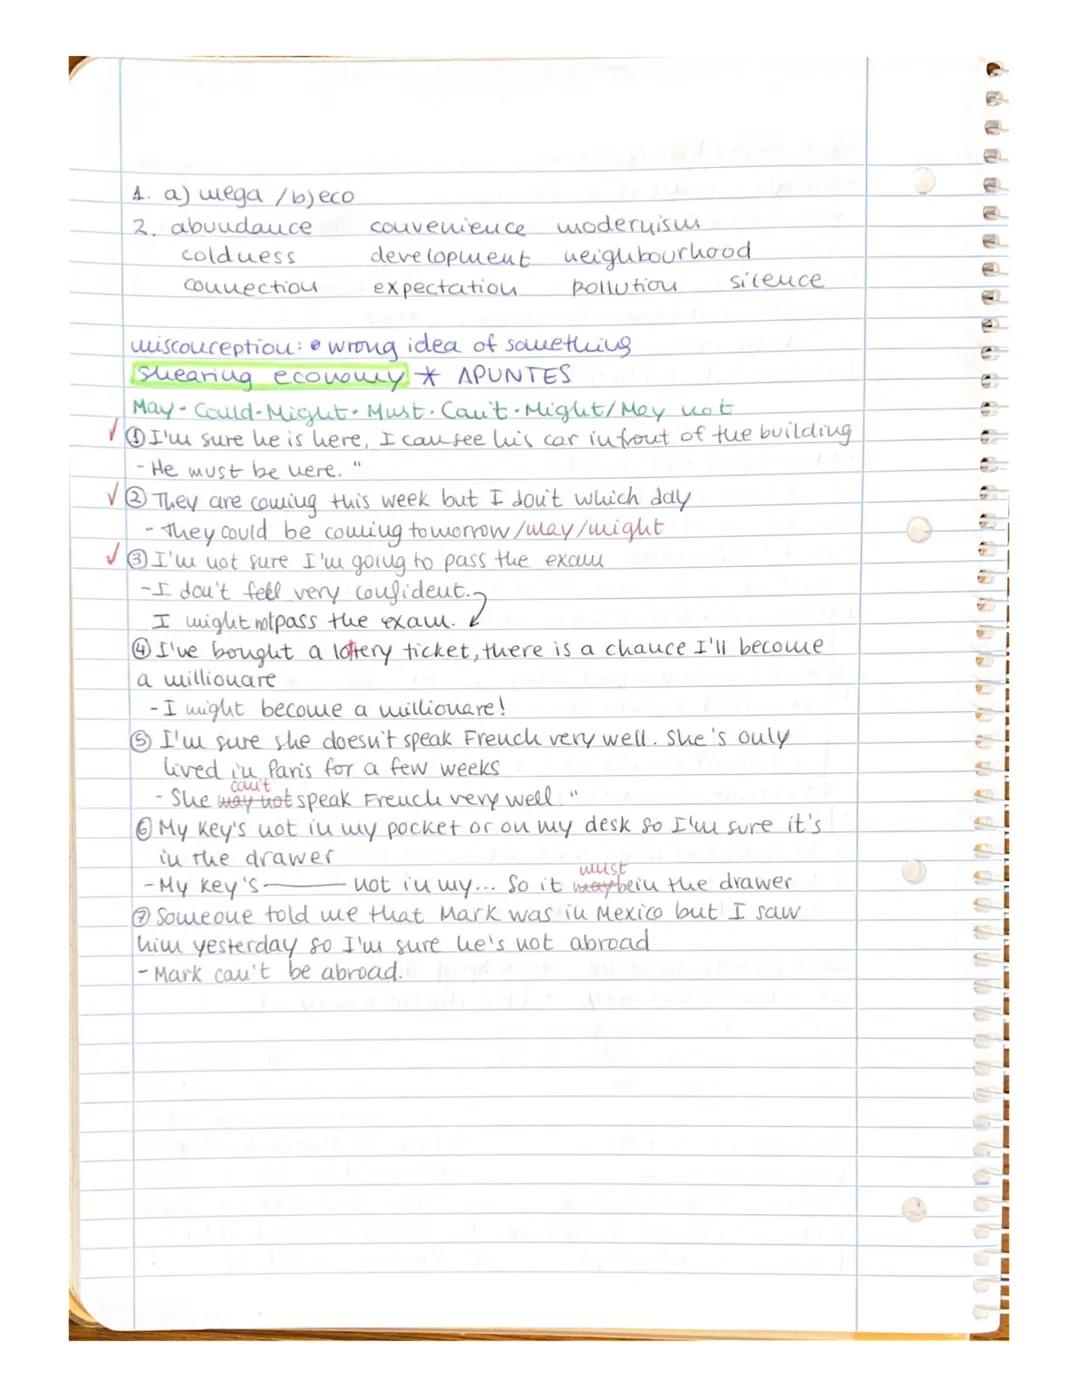 1. a) mega / b) eco
2. abundance convenience modernism
coldness development neighbourhood
connection expectation pollution silence
misconception: • wrong idea of something
shearing economy * APUNTES
May - Could - Might - Must - Can't - Might/May not
✓ ① I'm sure he is here, I can see his car infront of the building
- He must be here. "
✓ ② They are coming this week but I don't which day
- They could be coming tomorrow /may /might
✓ ③ I'm not sure I'm going to pass the exam
- I don't fell very confident.
I might not pass the exam.
④ I've bought a lottery ticket, there is a chance I'll become
a millionare
- I might become a millionare!
⑤ I'm sure she doesn't speak French very well. She's only
lived in Paris for a few weeks
can't
- She may not speak French very well. "
⑥ My key's not in my pocket or on my desk so I'm sure it's
in the drawer
must
- My key's —— not in my... So it may be in the drawer
⑦ Someone told me that Mark was in Mexico but I saw
him yesterday so I'm sure he's not abroad
- Mark can't be abroad.